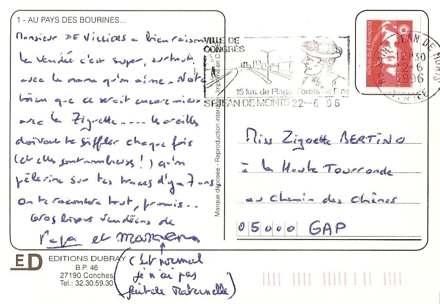 1 - AU PAYS DES BOURINES...
Monsieur DE VILLIERS a bien raison
la Vendée c'est super, surtout
avec la nana qu'on aime. Note
bien que ce serait encore mieux
avec la Zigette ---- les oreilles
doivent te siffler chaque fois
(et elles sont nombreuses!) qu'on
pèlerine sur tes traces d'y a 7 ans
On te racontera tout, promis...
Gros bisous vendéens de
papa et maman
(C'est normal
je n'ai pas
fait de maternelle)
ED
EDITIONS DUBRAY
B.P. 46
27190 Conches
Tel.: 32.30.59.30
Marque déposée - Reproduction interdite
VILLE DE
CONGRES
15 km de Plage Forêts
ST JEAN DE MONTS 22-6 96
ST JEAN DE MONTS
22-6
1996
Miss Zigoette BERTINO
à la Haute Tourronde
au Chemin des Chênes
05000 GAP